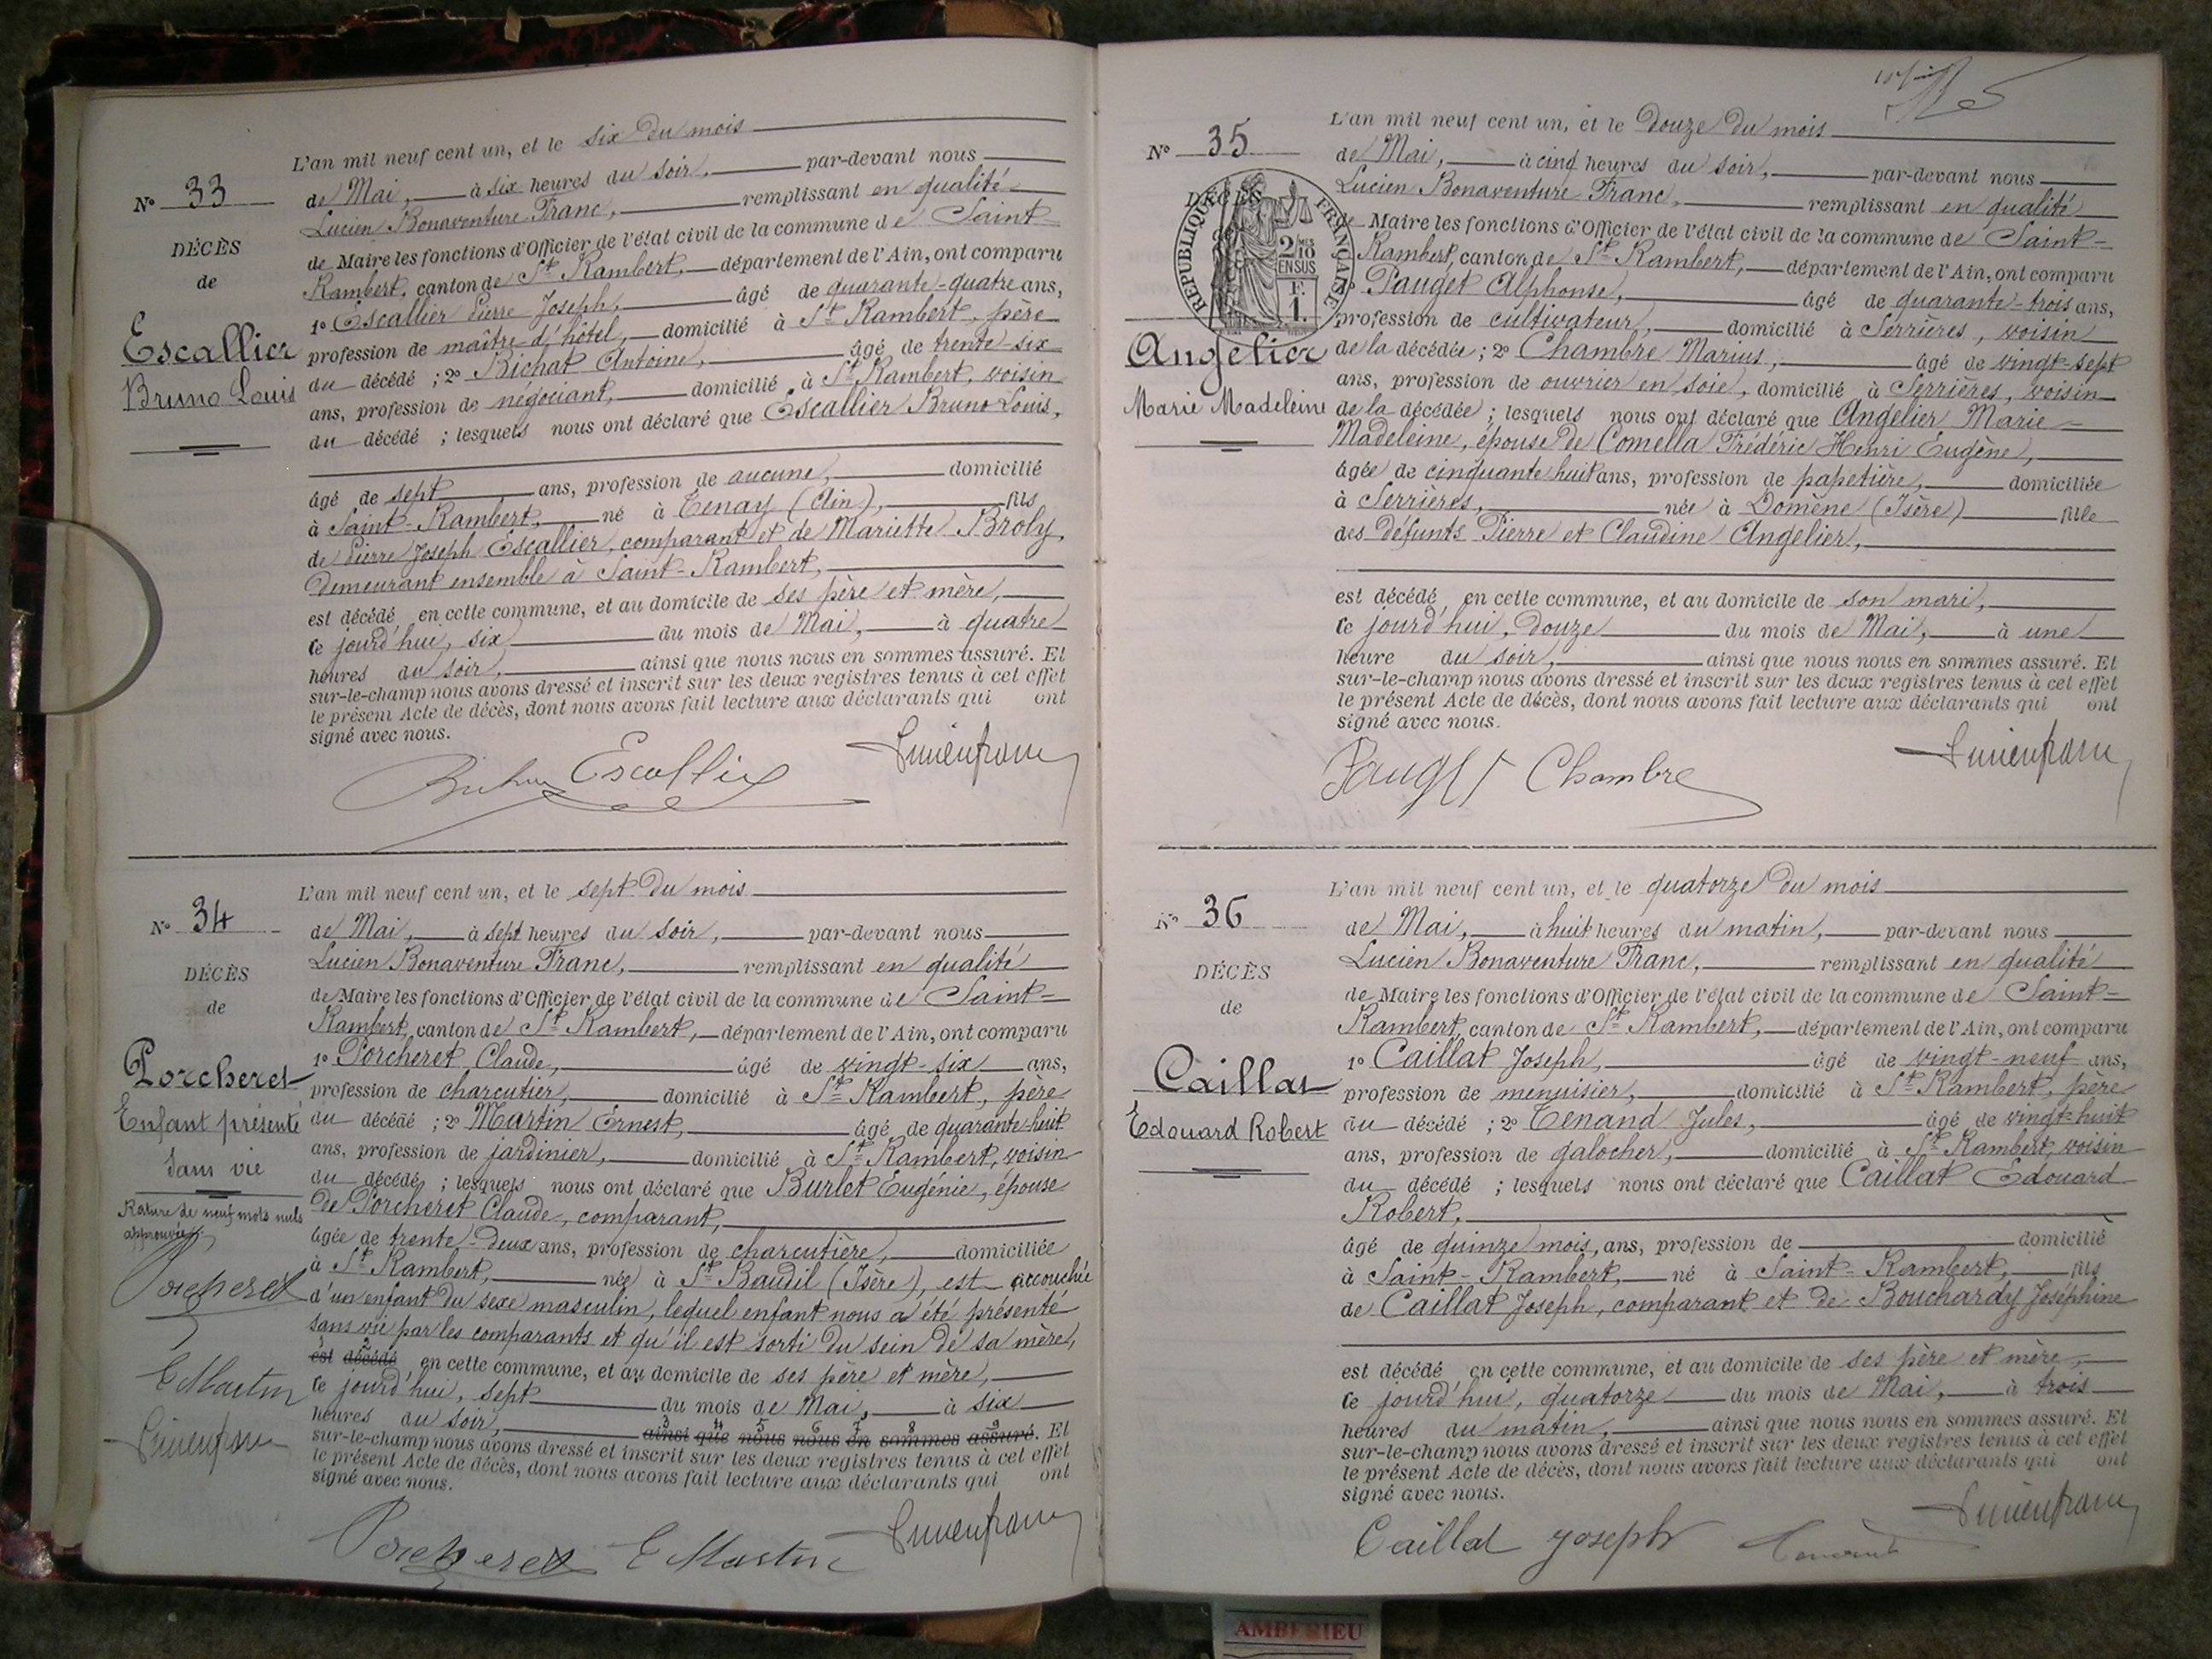 L'an mil neuf cent un, et le six du mois
N° 33
de Mai, à six heures du soir, par-devant nous
Lucien Bonaventure Franc, remplissant en qualité
DÉCÈS
de Maire les fonctions d'Officier de l'état civil de la commune de Saint-
de
Rambert, canton de St Rambert, département de l'Ain, ont comparu
1° Escallier Pierre Joseph, âgé de quarante-quatre ans,
Escallier
profession de maître d'hôtel, domicilié à St Rambert, père
Bruno Louis
du décédé ; 2° Bichat Antoine, âgé de trente-six
ans, profession de négociant, domicilié à St Rambert, voisin
du décédé ; lesquels nous ont déclaré que Escallier Bruno Louis,
âgé de sept ans, profession de aucune, domicilié
à Saint-Rambert, né à Tenay (Ain), fils
de Pierre Joseph Escallier, comparant et de Mariette Broly,
demeurant ensemble à Saint-Rambert,
est décédé en cette commune, et au domicile de ses père et mère,
ce jourd'hui, six du mois de Mai, à quatre
heures du soir, ainsi que nous nous en sommes assuré. Et
sur-le-champ nous avons dressé et inscrit sur les deux registres tenus à cet effet
le présent Acte de décès, dont nous avons fait lecture aux déclarants qui ont
signé avec nous.
Escallier Lucien Franc
L'an mil neuf cent un, et le sept du mois
N° 34
de Mai, à sept heures du soir, par-devant nous
Lucien Bonaventure Franc, remplissant en qualité
DÉCÈS
de Maire les fonctions d'Officier de l'état civil de la commune de Saint-
de
Rambert, canton de St Rambert, département de l'Ain, ont comparu
1° Porcheret Claude, âgé de vingt-six ans,
Porcheret
profession de charcutier, domicilié à St Rambert, père
Enfant présenté
du décédé ; 2° Martin Ernest, âgé de quarante-huit
sans vie
ans, profession de jardinier, domicilié à St Rambert, voisin
du décédé ; lesquels nous ont déclaré que Burlet Eugénie, épouse
Rature de neuf mots nuls
approuvée.
de Porcheret Claude, comparant,
âgée de trente-deux ans, profession de charcutière, domiciliée
à St Rambert, née à St Baudil (Isère), est accouchée
Porcheret
d'un enfant du sexe masculin, lequel enfant nous a été présenté
sans vie par les comparants et qu'il est sorti du sein de sa mère,
est décédé en cette commune, et au domicile de ses père et mère,
E Martin
ce jourd'hui, sept du mois de Mai, à six
3 4 5 6 7 8 9
heures du soir, ainsi que nous nous en sommes assuré. Et
Lucien Franc
sur-le-champ nous avons dressé et inscrit sur les deux registres tenus à cet effet
le présent Acte de décès, dont nous avons fait lecture aux déclarants qui ont
signé avec nous.
Porcheret E Martin Lucien Franc
L'an mil neuf cent un, et le douze du mois
N° 35
de Mai, à cinq heures du soir, par-devant nous
Lucien Bonaventure Franc, remplissant en qualité
DÉCÈS
RÉPUBLIQUE FRANÇAISE
2/10
EN SUS
F.
1.
de Maire les fonctions d'Officier de l'état civil de la commune de Saint-
Rambert, canton de St Rambert, département de l'Ain, ont comparu
1° Pauget Alphonse, âgé de quarante-trois ans,
profession de cultivateur, domicilié à Serrières, voisin
Angelier
de la décédée ; 2° Chambre Marius, âgé de vingt-sept
ans, profession de ouvrier en soie, domicilié à Serrières, voisin
Marie Madeleine
de la décédée ; lesquels nous ont déclaré que Angelier Marie
Madeleine, épouse de Comella Frédéric Henri Eugène,
âgée de cinquante-huit ans, profession de papetière, domiciliée
à Serrières, née à Domène (Isère) fille
des défunts Pierre et Claudine Angelier,
est décédé en cette commune, et au domicile de son mari,
ce jourd'hui, douze du mois de Mai, à une
heure du soir, ainsi que nous nous en sommes assuré. Et
sur-le-champ nous avons dressé et inscrit sur les deux registres tenus à cet effet
le présent Acte de décès, dont nous avons fait lecture aux déclarants qui ont
signé avec nous.
Pauget Chambre Lucien Franc
L'an mil neuf cent un, et le quatorze du mois
N° 36
de Mai, à huit heures du matin, par-devant nous
Lucien Bonaventure Franc, remplissant en qualité
DÉCÈS
de Maire les fonctions d'Officier de l'état civil de la commune de Saint-
de
Rambert, canton de St Rambert, département de l'Ain, ont comparu
1° Caillat Joseph, âgé de vingt-neuf ans,
Caillat
profession de menuisier, domicilié à St Rambert, père
Edouard Robert
du décédé ; 2° Tenand Jules, âgé de vingt-huit
ans, profession de galocher, domicilié à St Rambert, voisin
du décédé ; lesquels nous ont déclaré que Caillat Edouard
Robert,
âgé de quinze mois, ans, profession de domicilié
à Saint-Rambert, né à Saint-Rambert, fils
de Caillat Joseph, comparant et de Bouchardy Joséphine
est décédé en cette commune, et au domicile de ses père et mère,
ce jourd'hui, quatorze du mois de Mai, à trois
heures du matin, ainsi que nous nous en sommes assuré. Et
sur-le-champ nous avons dressé et inscrit sur les deux registres tenus à cet effet
le présent Acte de décès, dont nous avons fait lecture aux déclarants qui ont
signé avec nous.
Caillat Joseph Tenand Lucien Franc
AMBERIEU